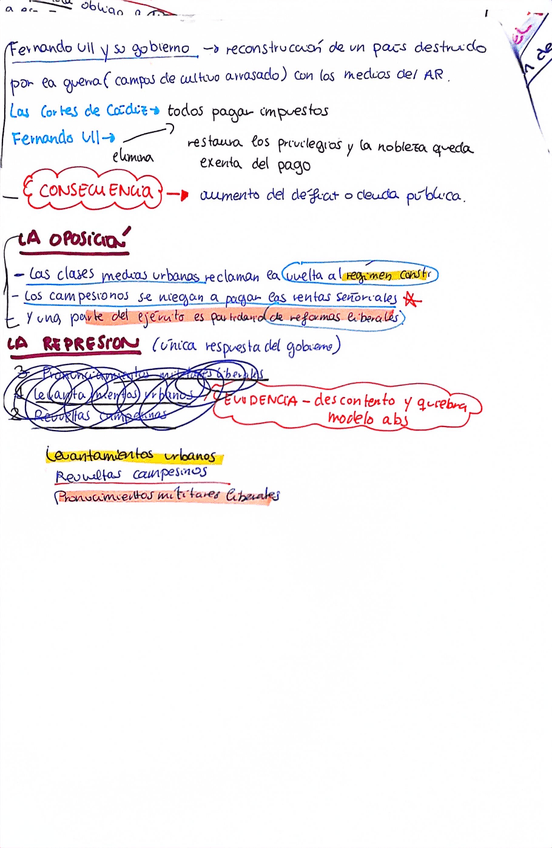 obligan a
1
Fernando VII y su gobierno → reconstrucción de un país destruido
por la guerra (campos de cultivo arrasado) con los medios del AR.
Las Cortes de Cádiz → todos pagar impuestos
Fernando VII →
elimina
restaura los privilegios y la nobleza queda
exenta del pago
CONSECUENCIA → aumento del déficit o deuda pública.
LA OPOSICIÓN
- Las clases medias urbanas reclaman la vuelta al régimen constr
- Los campesionos se niegan a pagar las rentas señoriales
Y una parte del ejército es partidario de reformas liberales
LA REPRESION (única respuesta del gobierno)
3. Pronunciamientos militares liberales
1. Levantamientos urbanos
2. Revueltas campesinas
EVIDENCIA - descontento y quiebra
modelo abs
Levantamientos urbanos
Revueltas campesinos
Pronucimientos militares liberales